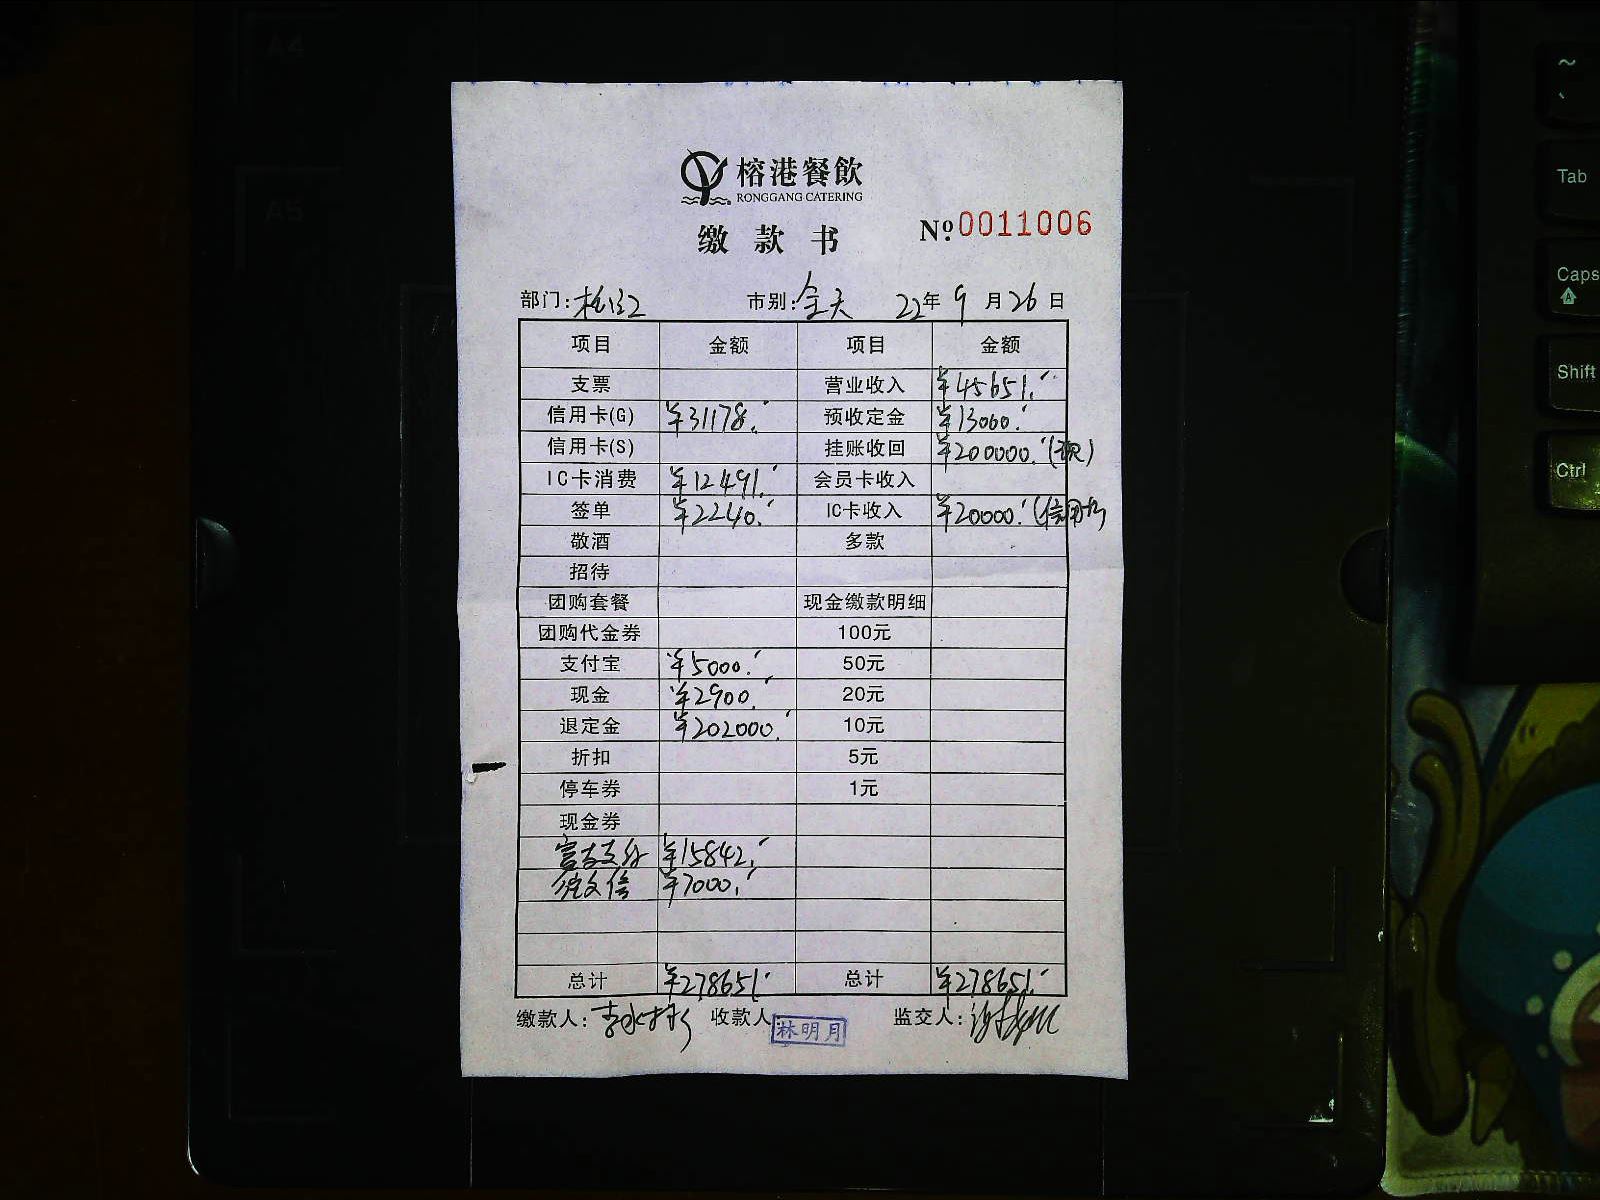 A4
A5
榕港餐飲
RONGGANG CATERING
缴款书
№ 0011006
部门: 市别:全天 22年9月26日
项目 金额 项目 金额
支票 营业收入 ¥45651.-
信用卡(G) ¥31178.- 预收定金 ¥13000.-
信用卡(S) 挂账收回 ¥200000.-(现)
IC卡消费 ¥12491.- 会员卡收入
签单 ¥2240.- IC卡收入 ¥20000.-(信用卡)
敬酒 多款
招待
团购套餐 现金缴款明细
团购代金券 100元
支付宝 ¥5000.- 50元
现金 ¥2900.- 20元
退定金 ¥202000.- 10元
折扣 5元
停车券 1元
现金券
富友支付 ¥15842.-
微信 ¥7000.-
总计 ¥278651.- 总计 ¥278651.-
缴款人: 收款人 林明月 监交人:
~
、
Tab
Caps
A
Shift
Ctrl